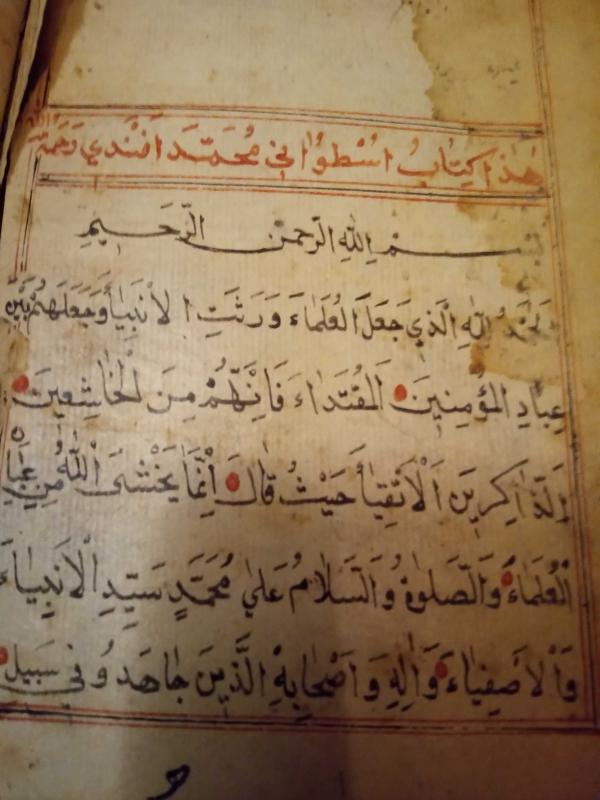 هٰذَا كِتَابُ اُسْطُوَانِي مُحَمَّدَ اَفَنْدِي رَحْمَةُ اللّٰه
بِسْمِ اللّٰهِ الرَّحْمٰنِ الرَّحِيمِ
اَلْحَمْدُ لِلّٰهِ الَّذِي جَعَلَ الْعُلَمَاءَ وَرَثَتِ الْاَنْبِيَاۤ وَجَعَلَهُمْ بَيْنَ
عِبَادِ الْمُؤْمِنِينَ اَلْمُقْتَدَاءَ فَاِنَّهُمْ مِنَ الْخَاشِعِينَ
اَلذَّاكِرِينَ اَلْاَتْقِيَاۤ حَيْثُ قَالَ اِنَّمَا يَخْشَى اللّٰهَ مِنْ عِبَادِهِ
الْعُلَمَاءُ وَالصَّلٰوةُ وَالسَّلَامُ عَلٰي مُحَمَّدٍ سَيِّدِ الْاَنْبِيَاءِ
وَالْاَصْفِيَاءِ وَاٰلِهِ وَاَصْحَابِهِ الَّذِينَ جَاهَدُو فِي سَبِيلِ